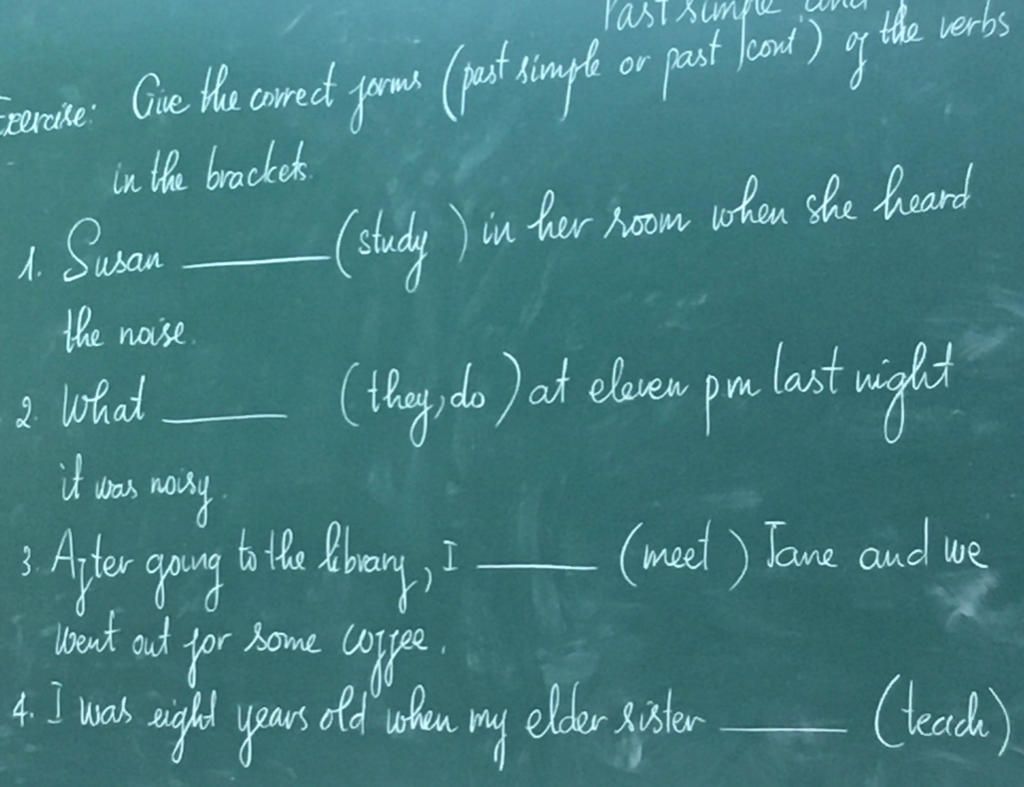 Past simple and
Exercise: Give the correct forms (past simple or past cont') of the verbs
in the brackets.
1. Susan ______ (study ) in her room when she heard
the noise.
2. What ______ (they, do ) at eleven pm last night
it was noisy.
3. After going to the library, I ______ (meet ) Jane and we
went out for some coffee.
4. I was eight years old when my elder sister ______ (teach)